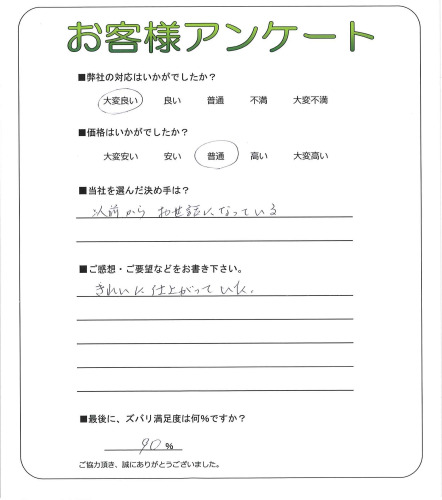 お客様アンケート
■弊社の対応はいかがでしたか？
大変良い 良い 普通 不満 大変不満
■価格はいかがでしたか？
大変安い 安い 普通 高い 大変高い
■当社を選んだ決め手は？
以前から お世話になっている
■ご感想・ご要望などをお書き下さい。
きれいに仕上がっていた。
■最後に、ズバリ満足度は何%ですか？
90 %
ご協力頂き、誠にありがとうございました。